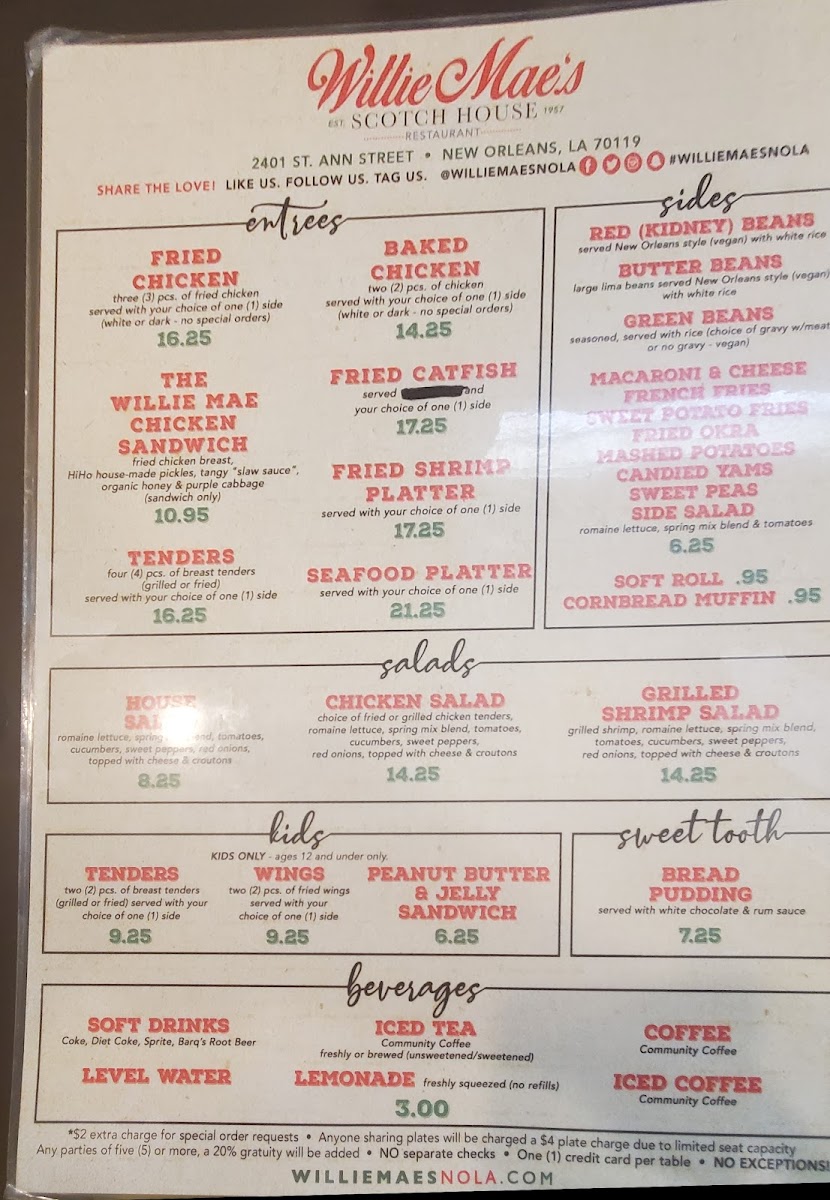 Willie Mae's
EST. SCOTCH HOUSE 1957
RESTAURANT
2401 ST. ANN STREET • NEW ORLEANS, LA 70119
SHARE THE LOVE! LIKE US. FOLLOW US. TAG US. @WILLIEMAESNOLA #WILLIEMAESNOLA
entrees
FRIED
CHICKEN
three (3) pcs. of fried chicken
served with your choice of one (1) side
(white or dark - no special orders)
16.25
THE
WILLIE MAE
CHICKEN
SANDWICH
fried chicken breast,
HiHo house-made pickles, tangy "slaw sauce",
organic honey & purple cabbage
(sandwich only)
10.95
TENDERS
four (4) pcs. of breast tenders
(grilled or fried)
served with your choice of one (1) side
16.25
BAKED
CHICKEN
two (2) pcs. of chicken
served with your choice of one (1) side
(white or dark - no special orders)
14.25
FRIED CATFISH
served and
your choice of one (1) side
17.25
FRIED SHRIMP
PLATTER
served with your choice of one (1) side
17.25
SEAFOOD PLATTER
served with your choice of one (1) side
21.25
sides
RED (KIDNEY) BEANS
served New Orleans style (vegan) with white rice
BUTTER BEANS
large lima beans served New Orleans style (vegan)
with white rice
GREEN BEANS
seasoned, served with rice (choice of gravy w/meat
or no gravy - vegan)
MACARONI & CHEESE
FRENCH FRIES
SWEET POTATO FRIES
FRIED OKRA
MASHED POTATOES
CANDIED YAMS
SWEET PEAS
SIDE SALAD
romaine lettuce, spring mix blend & tomatoes
6.25
SOFT ROLL .95
CORNBREAD MUFFIN .95
salads
HOUSE
SALAD
romaine lettuce, spring blend, tomatoes,
cucumbers, sweet peppers, red onions,
topped with cheese & croutons
8.25
CHICKEN SALAD
choice of fried or grilled chicken tenders,
romaine lettuce, spring mix blend, tomatoes,
cucumbers, sweet peppers,
red onions, topped with cheese & croutons
14.25
GRILLED
SHRIMP SALAD
grilled shrimp, romaine lettuce, spring mix blend,
tomatoes, cucumbers, sweet peppers,
red onions, topped with cheese & croutons
14.25
kids
KIDS ONLY - ages 12 and under only.
TENDERS
two (2) pcs. of breast tenders
(grilled or fried) served with your
choice of one (1) side
9.25
WINGS
two (2) pcs. of fried wings
served with your
choice of one (1) side
9.25
PEANUT BUTTER
& JELLY
SANDWICH
6.25
sweet tooth
BREAD
PUDDING
served with white chocolate & rum sauce
7.25
beverages
SOFT DRINKS
Coke, Diet Coke, Sprite, Barq's Root Beer
LEVEL WATER
ICED TEA
Community Coffee
freshly or brewed (unsweetened/sweetened)
LEMONADE freshly squeezed (no refills)
3.00
COFFEE
Community Coffee
ICED COFFEE
Community Coffee
*$2 extra charge for special order requests • Anyone sharing plates will be charged a $4 plate charge due to limited seat capacity
Any parties of five (5) or more, a 20% gratuity will be added • NO separate checks • One (1) credit card per table • NO EXCEPTIONS!
WILLIEMAESNOLA.COM